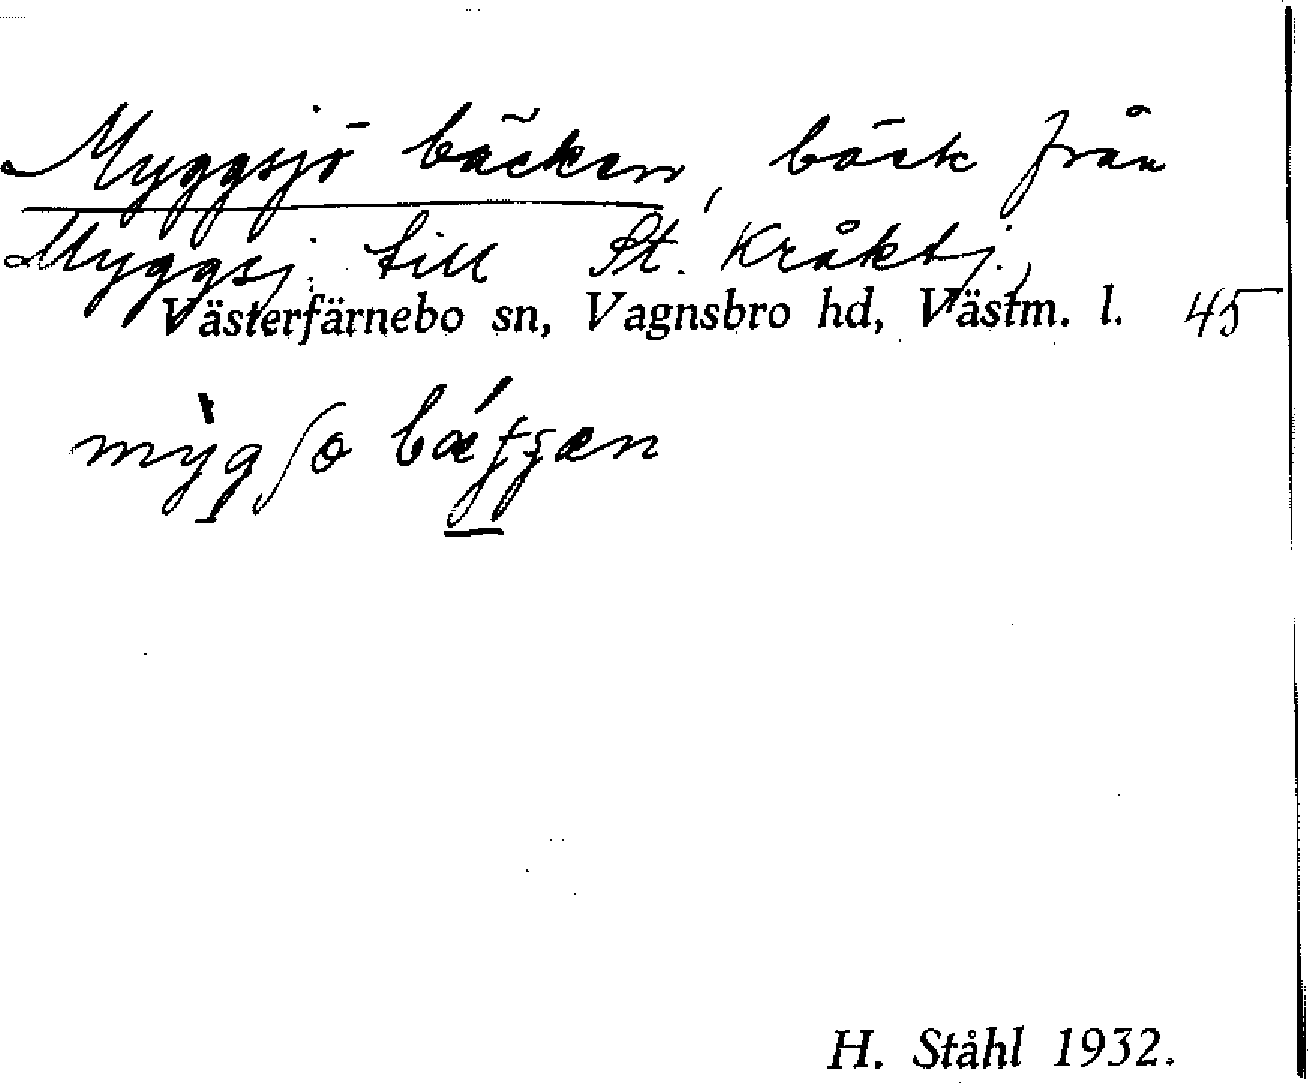 Myggsjöbäcken, bäck från
Myggsj. till St. Kråktj.,
Västerfärnebo sn, Vagnsbro hd, Västm. l. 45
H. Ståhl 1932.